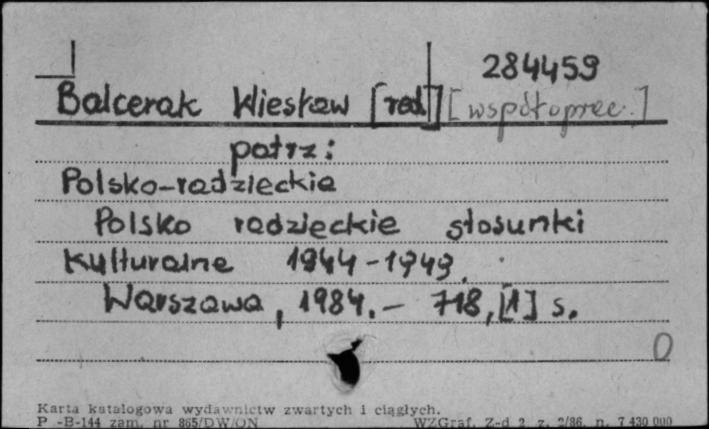 284459
Balcerak Wiesław [red] [współoprac.]
patrz:
Polsko-radzieckie
Polsko radzieckie stosunki
kulturalne 1944-1949.
Warszawa, 1984.- 718, [1] s.
0
Karta katalogowa wydawnictw zwartych i ciągłych.
P -B-144 zam. nr 865/DW/ON WZGraf. Z-d 2 z. 2/86. n. 7 430 000